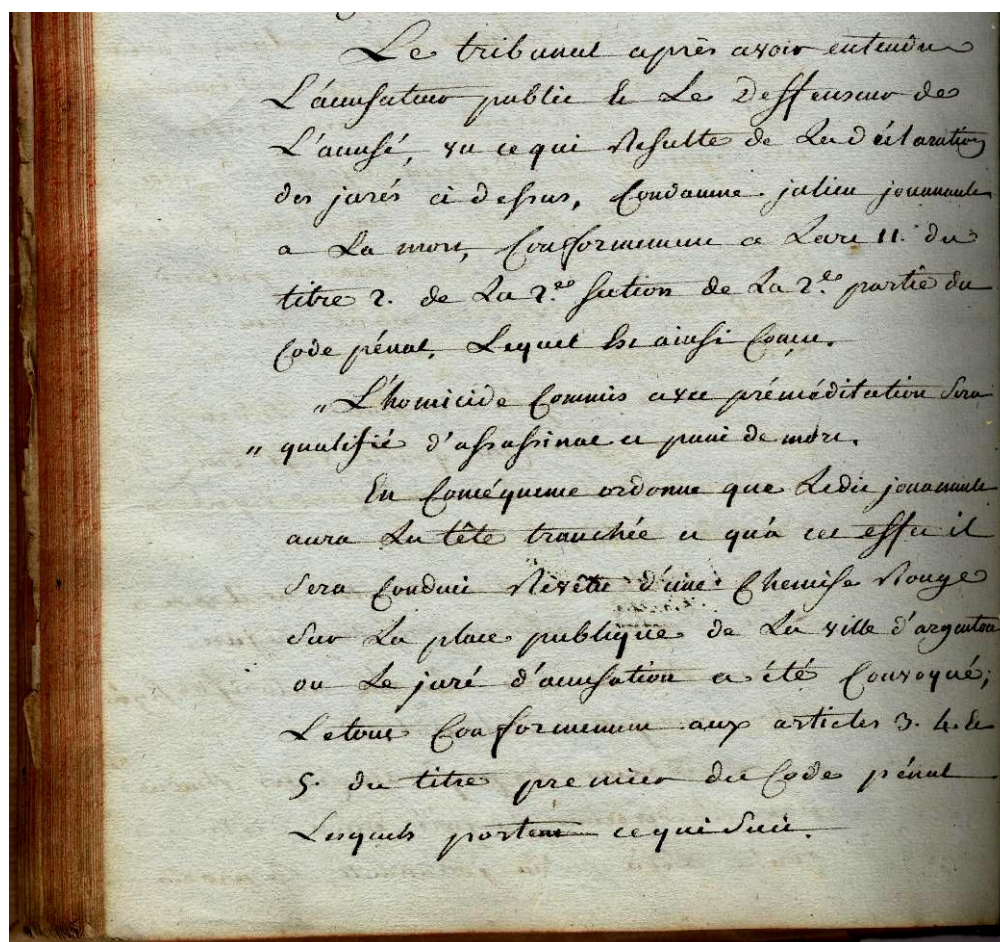 Le tribunal après avoir entendu
L'accusateur public & Le Deffenseur de
L'accusé, vu ce qui Resulte de La déclaration
des jurés ci dessus, Condamne julien jouannault
a La mort, Conformement a L'art 11. du
titre 2. de La 2.e Section de La 2.e partie du
Code pénal, Lequel Est ainsi Concu.
" L'homicide Commis avec préméditation Sera
" qualifié d'assassinat et puni de mort.
En Conséquence ordonne que Ledit jouannault
aura La tête tranchée et qu'a cet effet il
Sera Conduit Revêtu d'une Chemise Rouge
Sur La place publique de La ville d'argenton
ou Le juré d'accusation a été Convoqué;
Le tout Conformement aux articles 3. 4. &
5. du titre premier du Code pénal
Lesquels portent ce qui Suit.